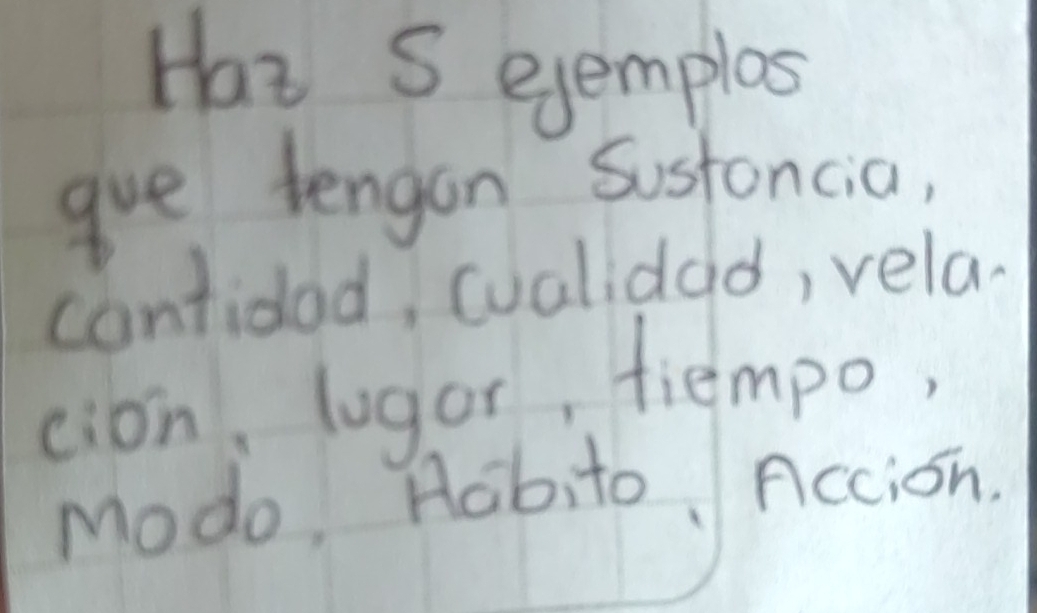 Haz 5 ejemplos
que tengan Sustancia,
cantidad, cualidad, rela-
ción, lugar, tiempo,
Modo, Hábito, Acción.